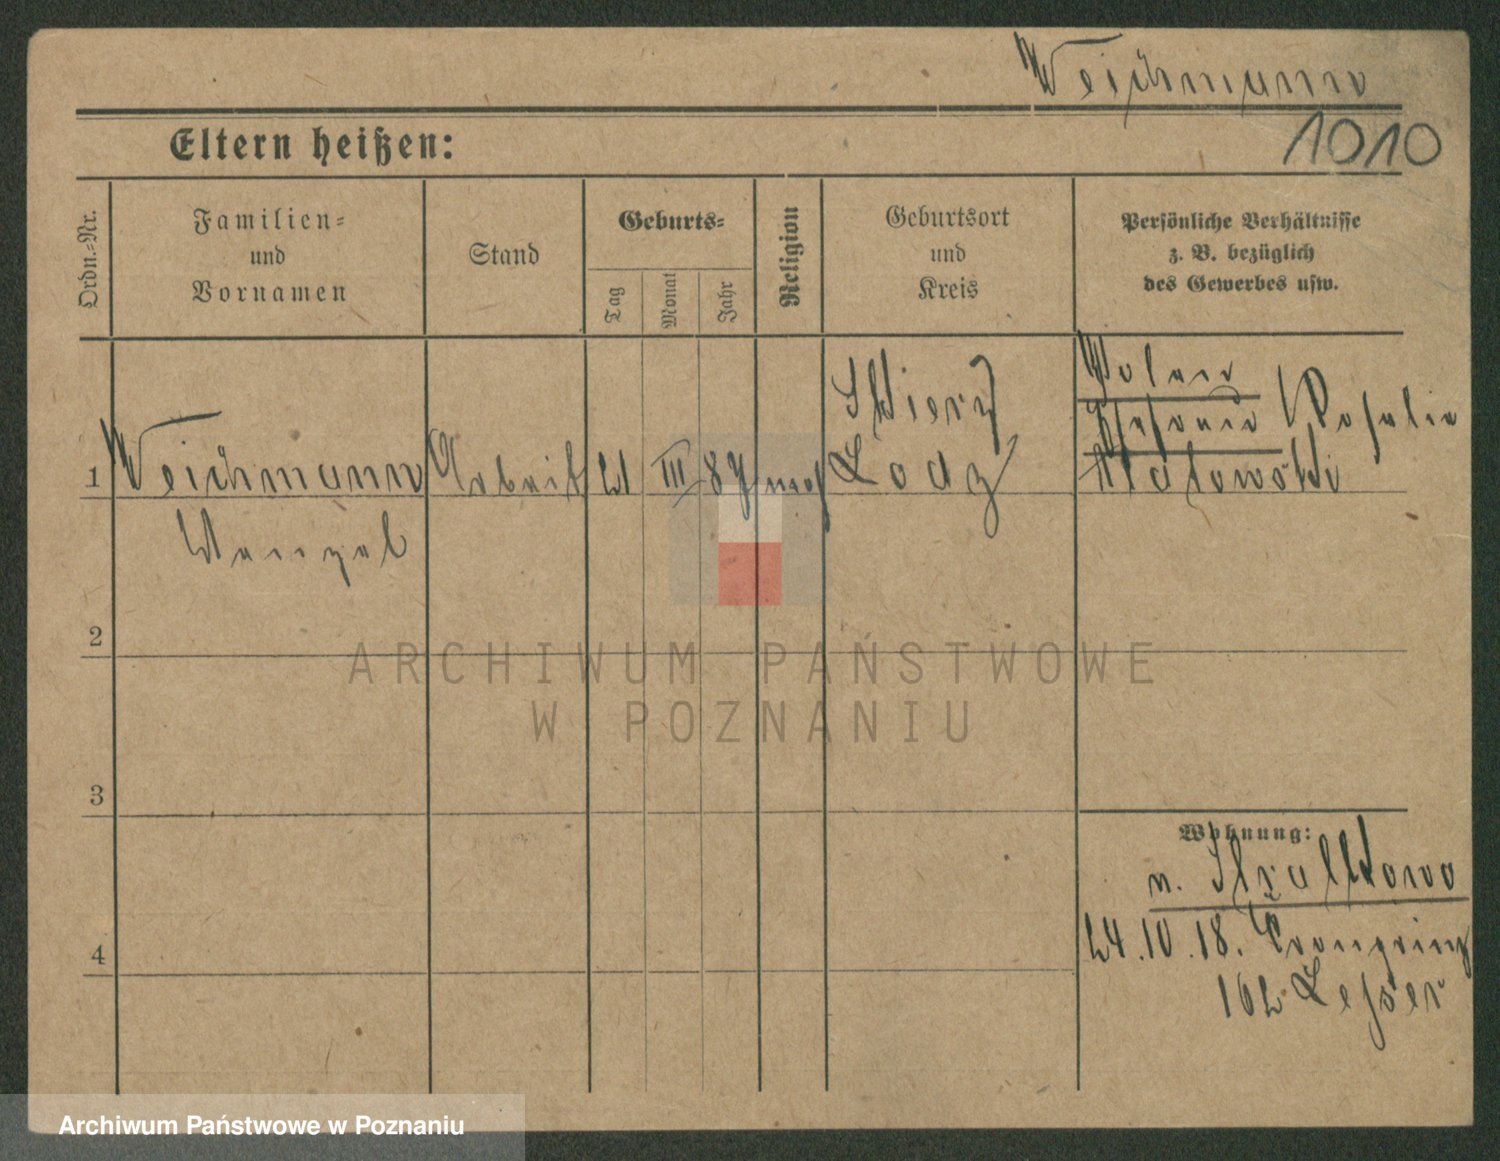 Weichmann
1010
Eltern heißen:
Ordn.-Nr.
Familien-
und
Vornamen
Stand
Geburts-
Tag
Monat
Jahr
Religion
Geburtsort
und
Kreis
Persönliche Verhältnisse
z. B. bezüglich
des Gewerbes usw.
1
Weichmann
Wenzel
Arbeit
21
III
87
mos
Lodz
Polen
Rosalie
2
3
4
Wohnung:
n. Stralkowo
24.10.18. Kronprinz
102 Lesser
ARCHIWUM PAŃSTWOWE
W POZNANIU
Archiwum Państwowe w Poznaniu